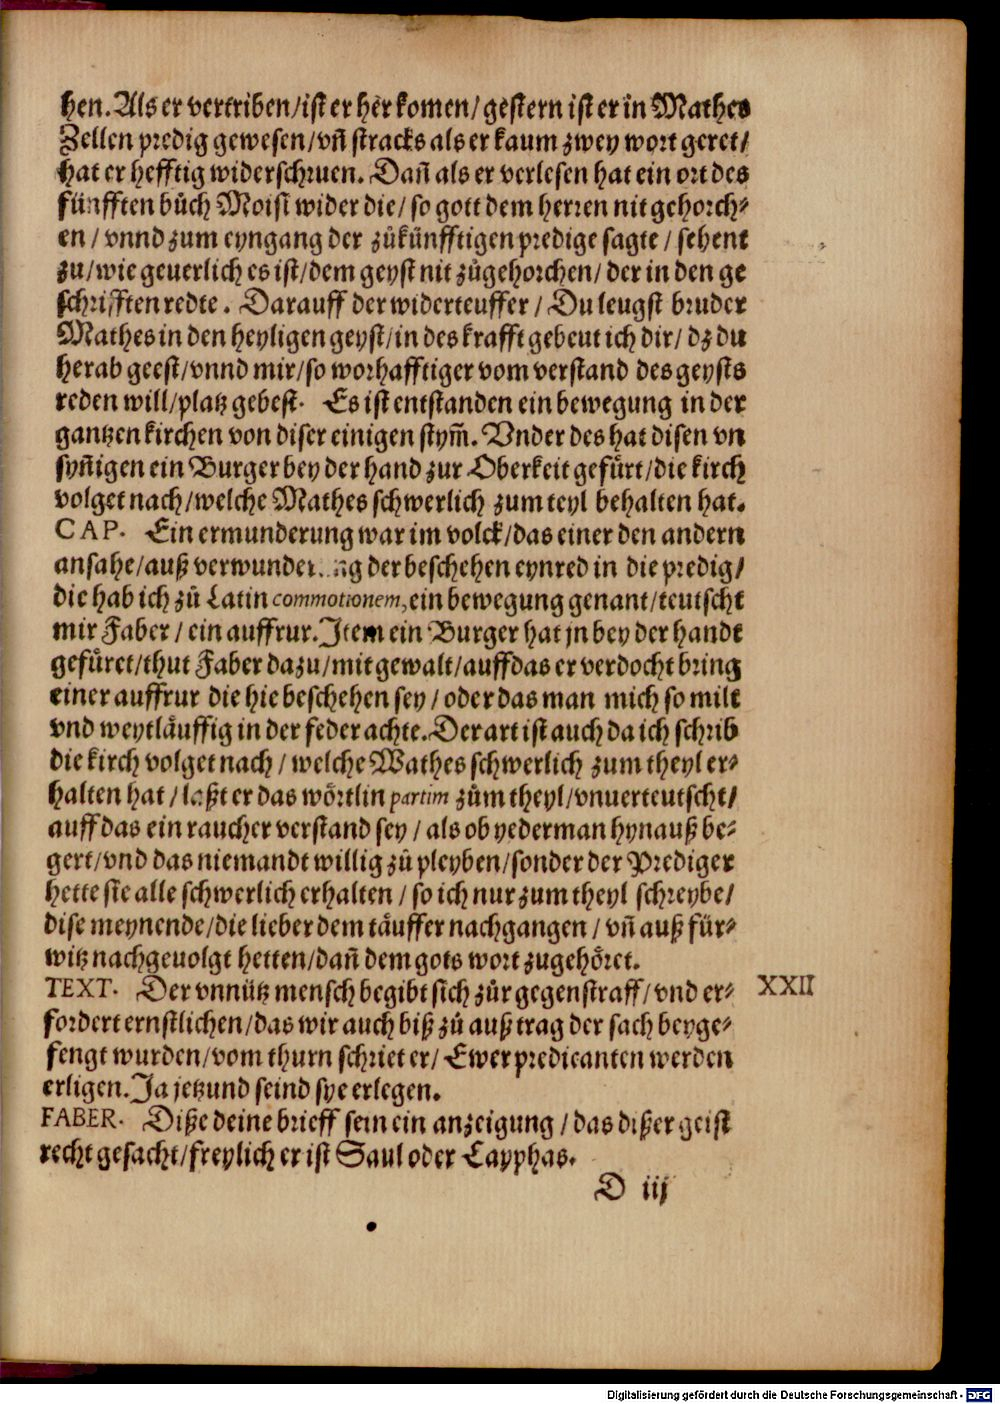 hen. Als er vertriben/ ist er her komen/ gestern ist er in Mathes
Zellen predig gewesen/ vñ stracks als er kaum zwey wort geret/
hat er hefftig widerschruen. Dañ als er verlesen hat ein ort des
fünfften bůch Moisi wider die/ so gott dem herren nit gehorch⸗
en/ vnnd zum eyngang der zůkünfftigen predige sagte/ sehent
zu/ wie geuerlich es ist/ dem geyst nit zůgehorchen/ der in den ge
schrifften redte. Darauff der widerteuffer/ Du leugst bruder
Mathes in den heyligen geyst/ in des krafft gebeut ich dir/ dz du
herab geest/ vnnd mir/ so worhafftiger vom verstand des geysts
reden will/ platz gebest. Es ist entstanden ein bewegung in der
gantzen kirchen von diser einigen stym̃. Vnder des hat disen vn
syñigen ein Burger bey der hand zur Oberkeit gefůrt/ die kirch
volget nach/ welche Mathes schwerlich zum teyl behalten hat.
CAP. Ein ermunderung war im volck/ das einer den andern
ansahe/ auß der beschehen eynred in die predig/
die hab ich zů Latin commotionem, ein bewegung genant/ teutscht
mir Faber/ ein auffrur. Item ein Burger hat jn bey der handt
gefůret/ thut Faber dazu/ mit gewalt/ auff das er verdocht bring
einer auffrur die hie beschehen sey/ oder das man mich so milt
vnd weytläuffig in der feder achte. Der art ist auch da ich schrib
die kirch volget nach/ welche Mathes schwerlich zum theyl er⸗
halten hat/ laßt er das wörtlin partim zům theyl/ vnuerteutscht/
auff das ein raucher verstand sey/ als ob yederman hynauß be⸗
gert/ vnd das niemandt willig zů pleyben/ sonder der Prediger
hette sie alle schwerlich erhalten/ so ich nur zum theyl schreybe/
dise meynende/ die lieber dem täuffer nachgangen/ vñ auß für⸗
witz nachgeuolgt hetten/ dañ dem gots wort zugehöret.
TEXT. Der vnnütz mensch begibt sich zůr gegenstraff/ vnd er⸗ XXII
fordert ernstlichen/ das wir auch biß zů auß trag der sach beyge⸗
fengt wurden/ vom thurn schriet er/ Ewer predicanten werden
erligen. Ja jetzund seind sye erlegen.
FABER. Diße deine brieff sein ein anzeigung/ das dißer geist
recht gesacht/ freylich er ist Saul oder Cayphas.
D iij
Digitalisierung gefördert durch die Deutsche Forschungsgemeinschaft - DFG